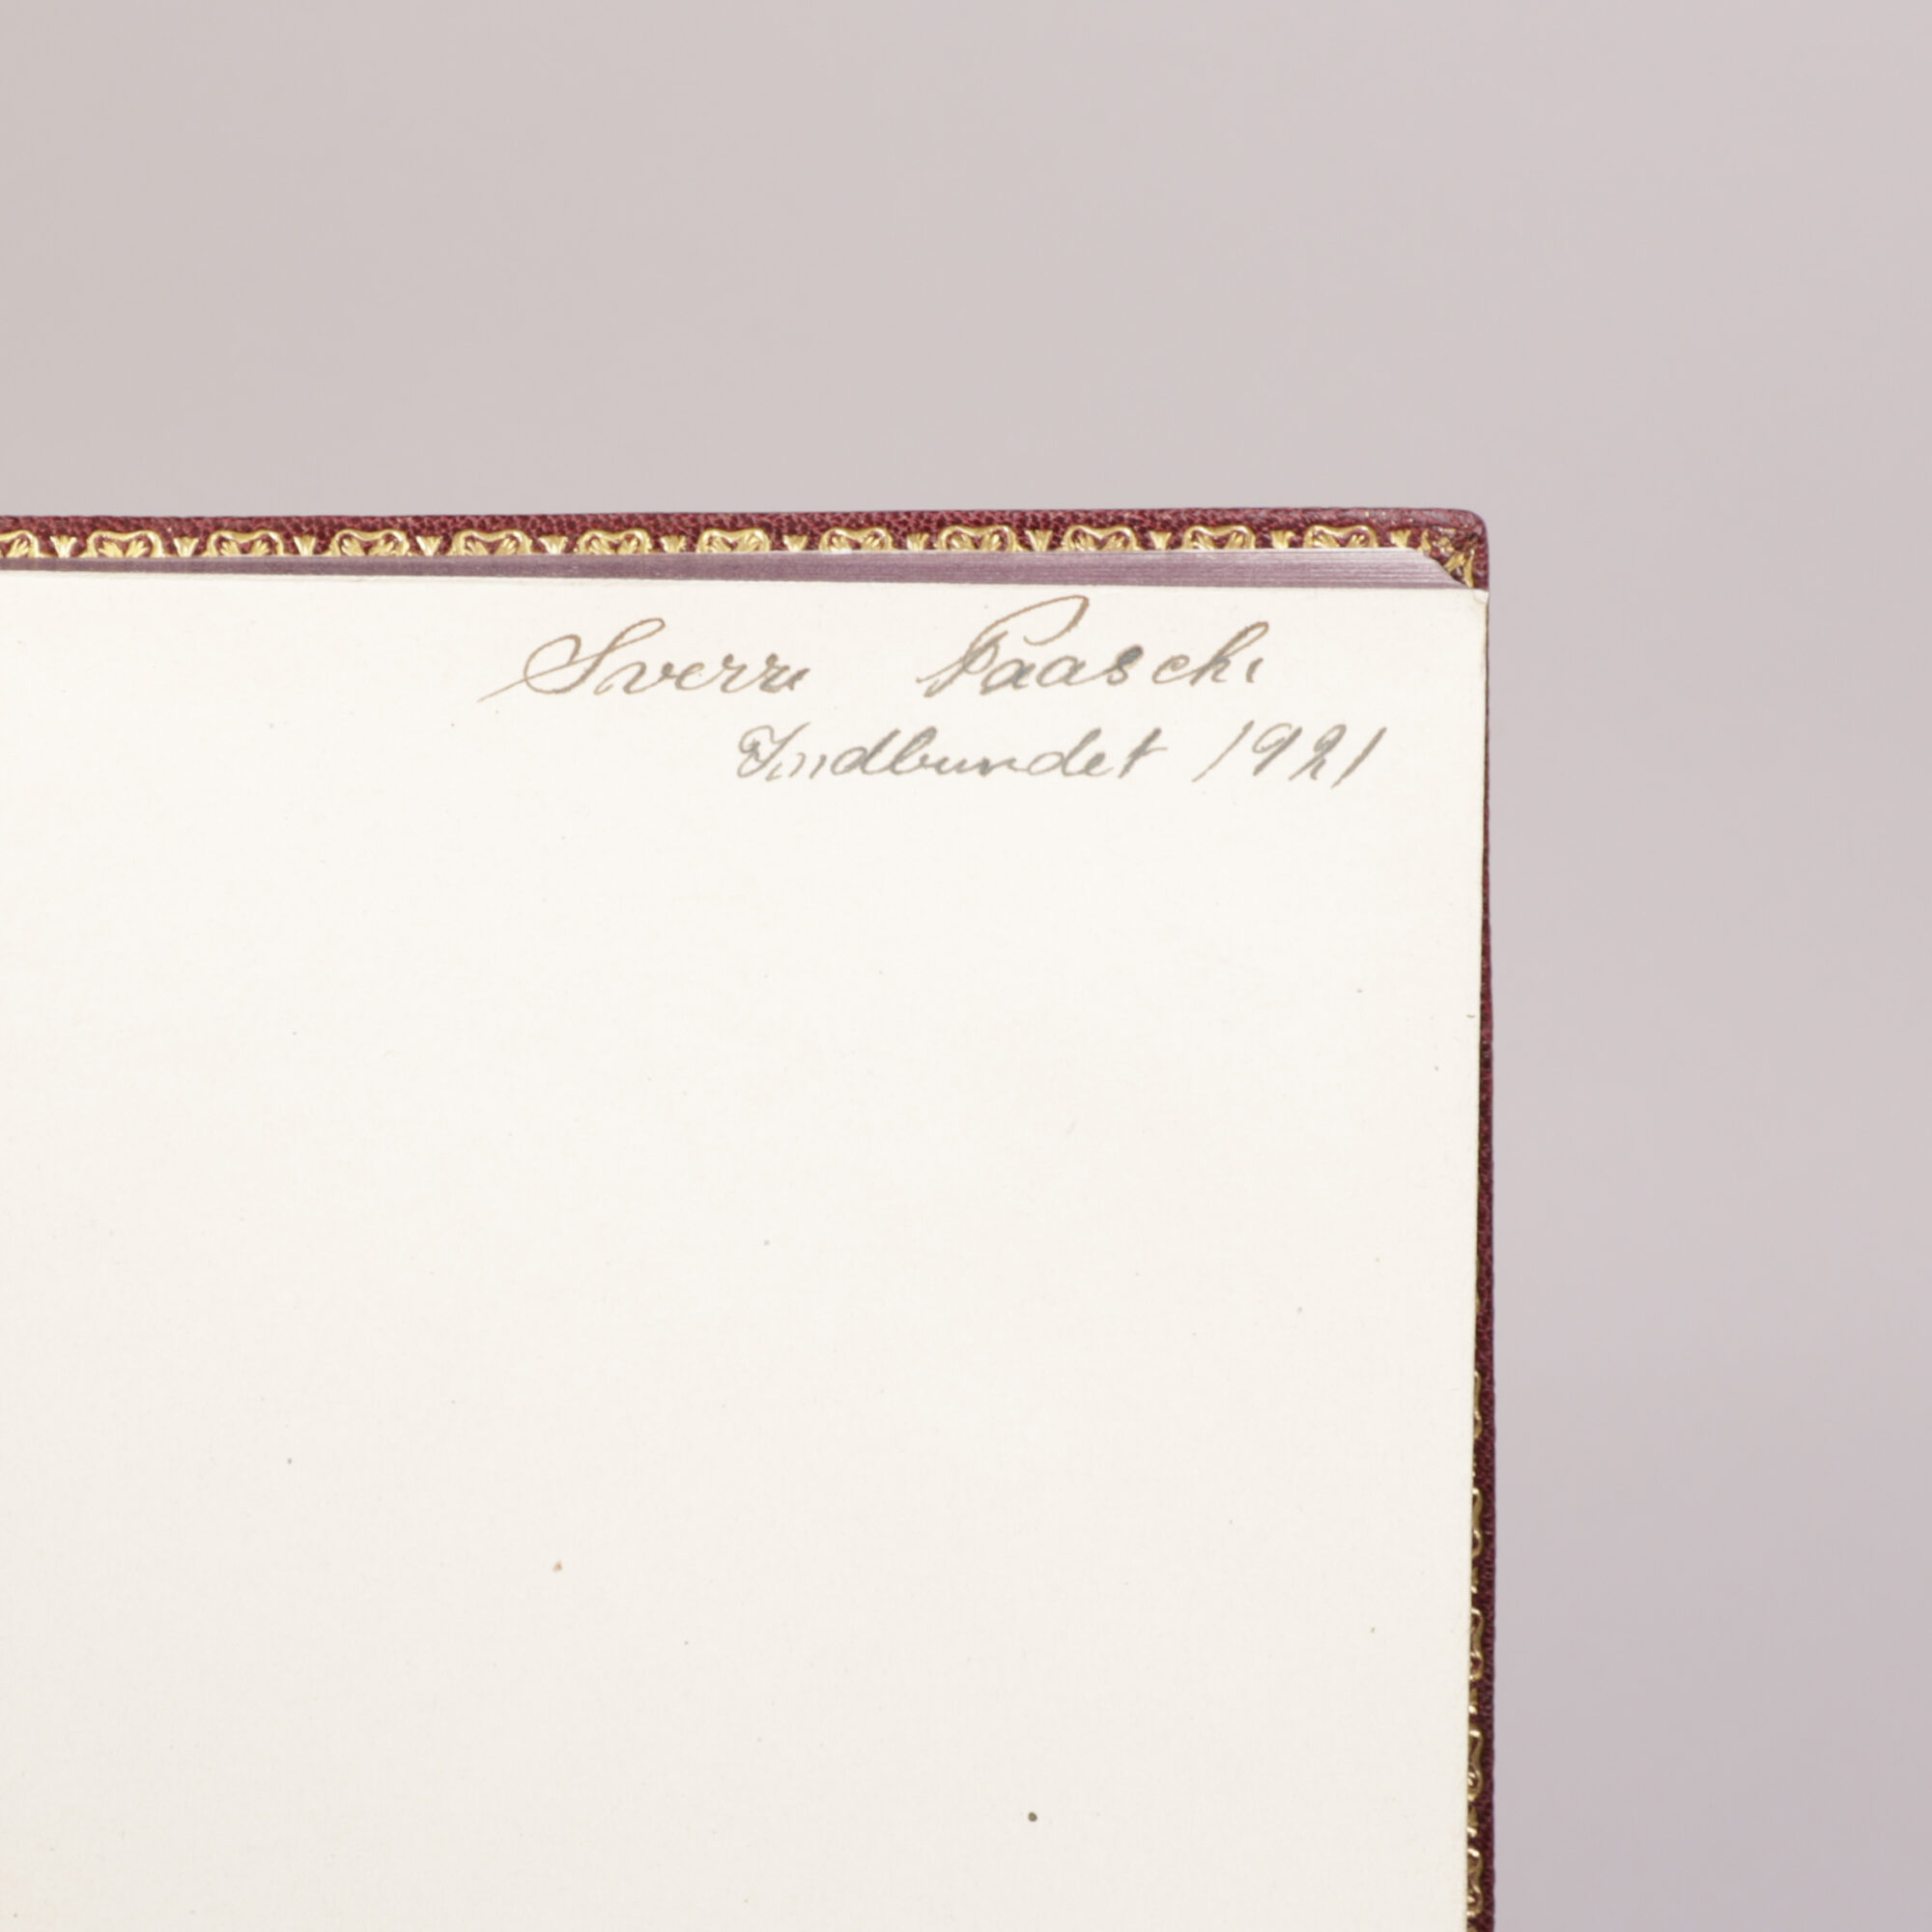 Sverre Paasche
Indbundet 1921